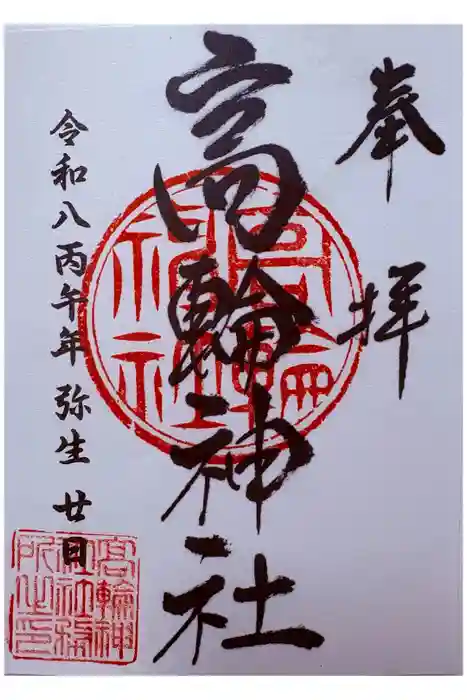 奉拝
高輪神社
令和八丙午年弥生廿日
高輪神
社社務
所之印
高輪
神社